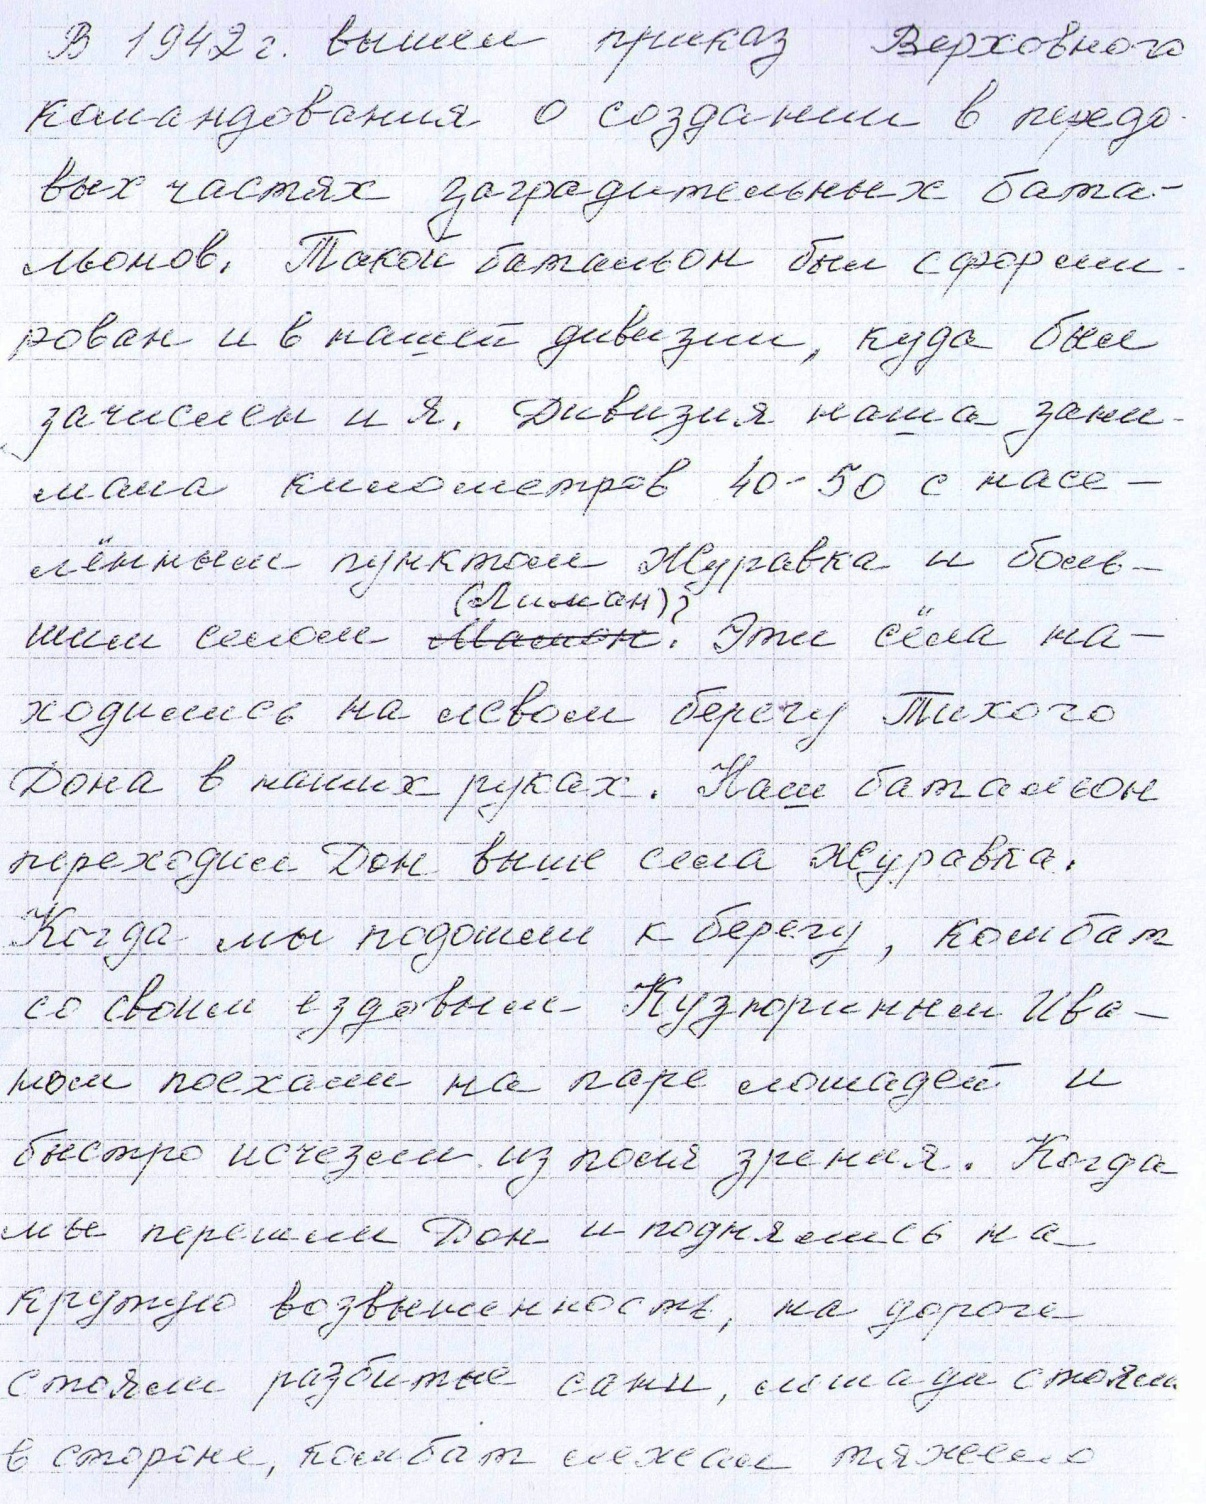 В 1942 г. вышел приказ Верховного
командования о создании в передо-
вых частях заградительных бата-
льонов. Такой батальон был сформи-
рован и в нашей дивизии, куда был
зачислен и я. Дивизия наша зани-
мала километров 40-50 с насе-
лённым пунктом Журавка и боль-
(Лиман)?
шим селом Мамон. Эти сёла на-
ходились на левом берегу Тихого
Дона в наших руках. Наш батальон
переходил Дон выше села Журавка.
Когда мы подошли к берегу, комбат
со своим ездовым Кузюриным Ива-
ном поехали на паре лошадей и
быстро исчезли из поля зрения. Когда
мы перешли Дон и поднялись на
крутую возвышенность, на дороге
стояли разбитые сани, лошади стояли
в стороне, комбат лежал тяжело